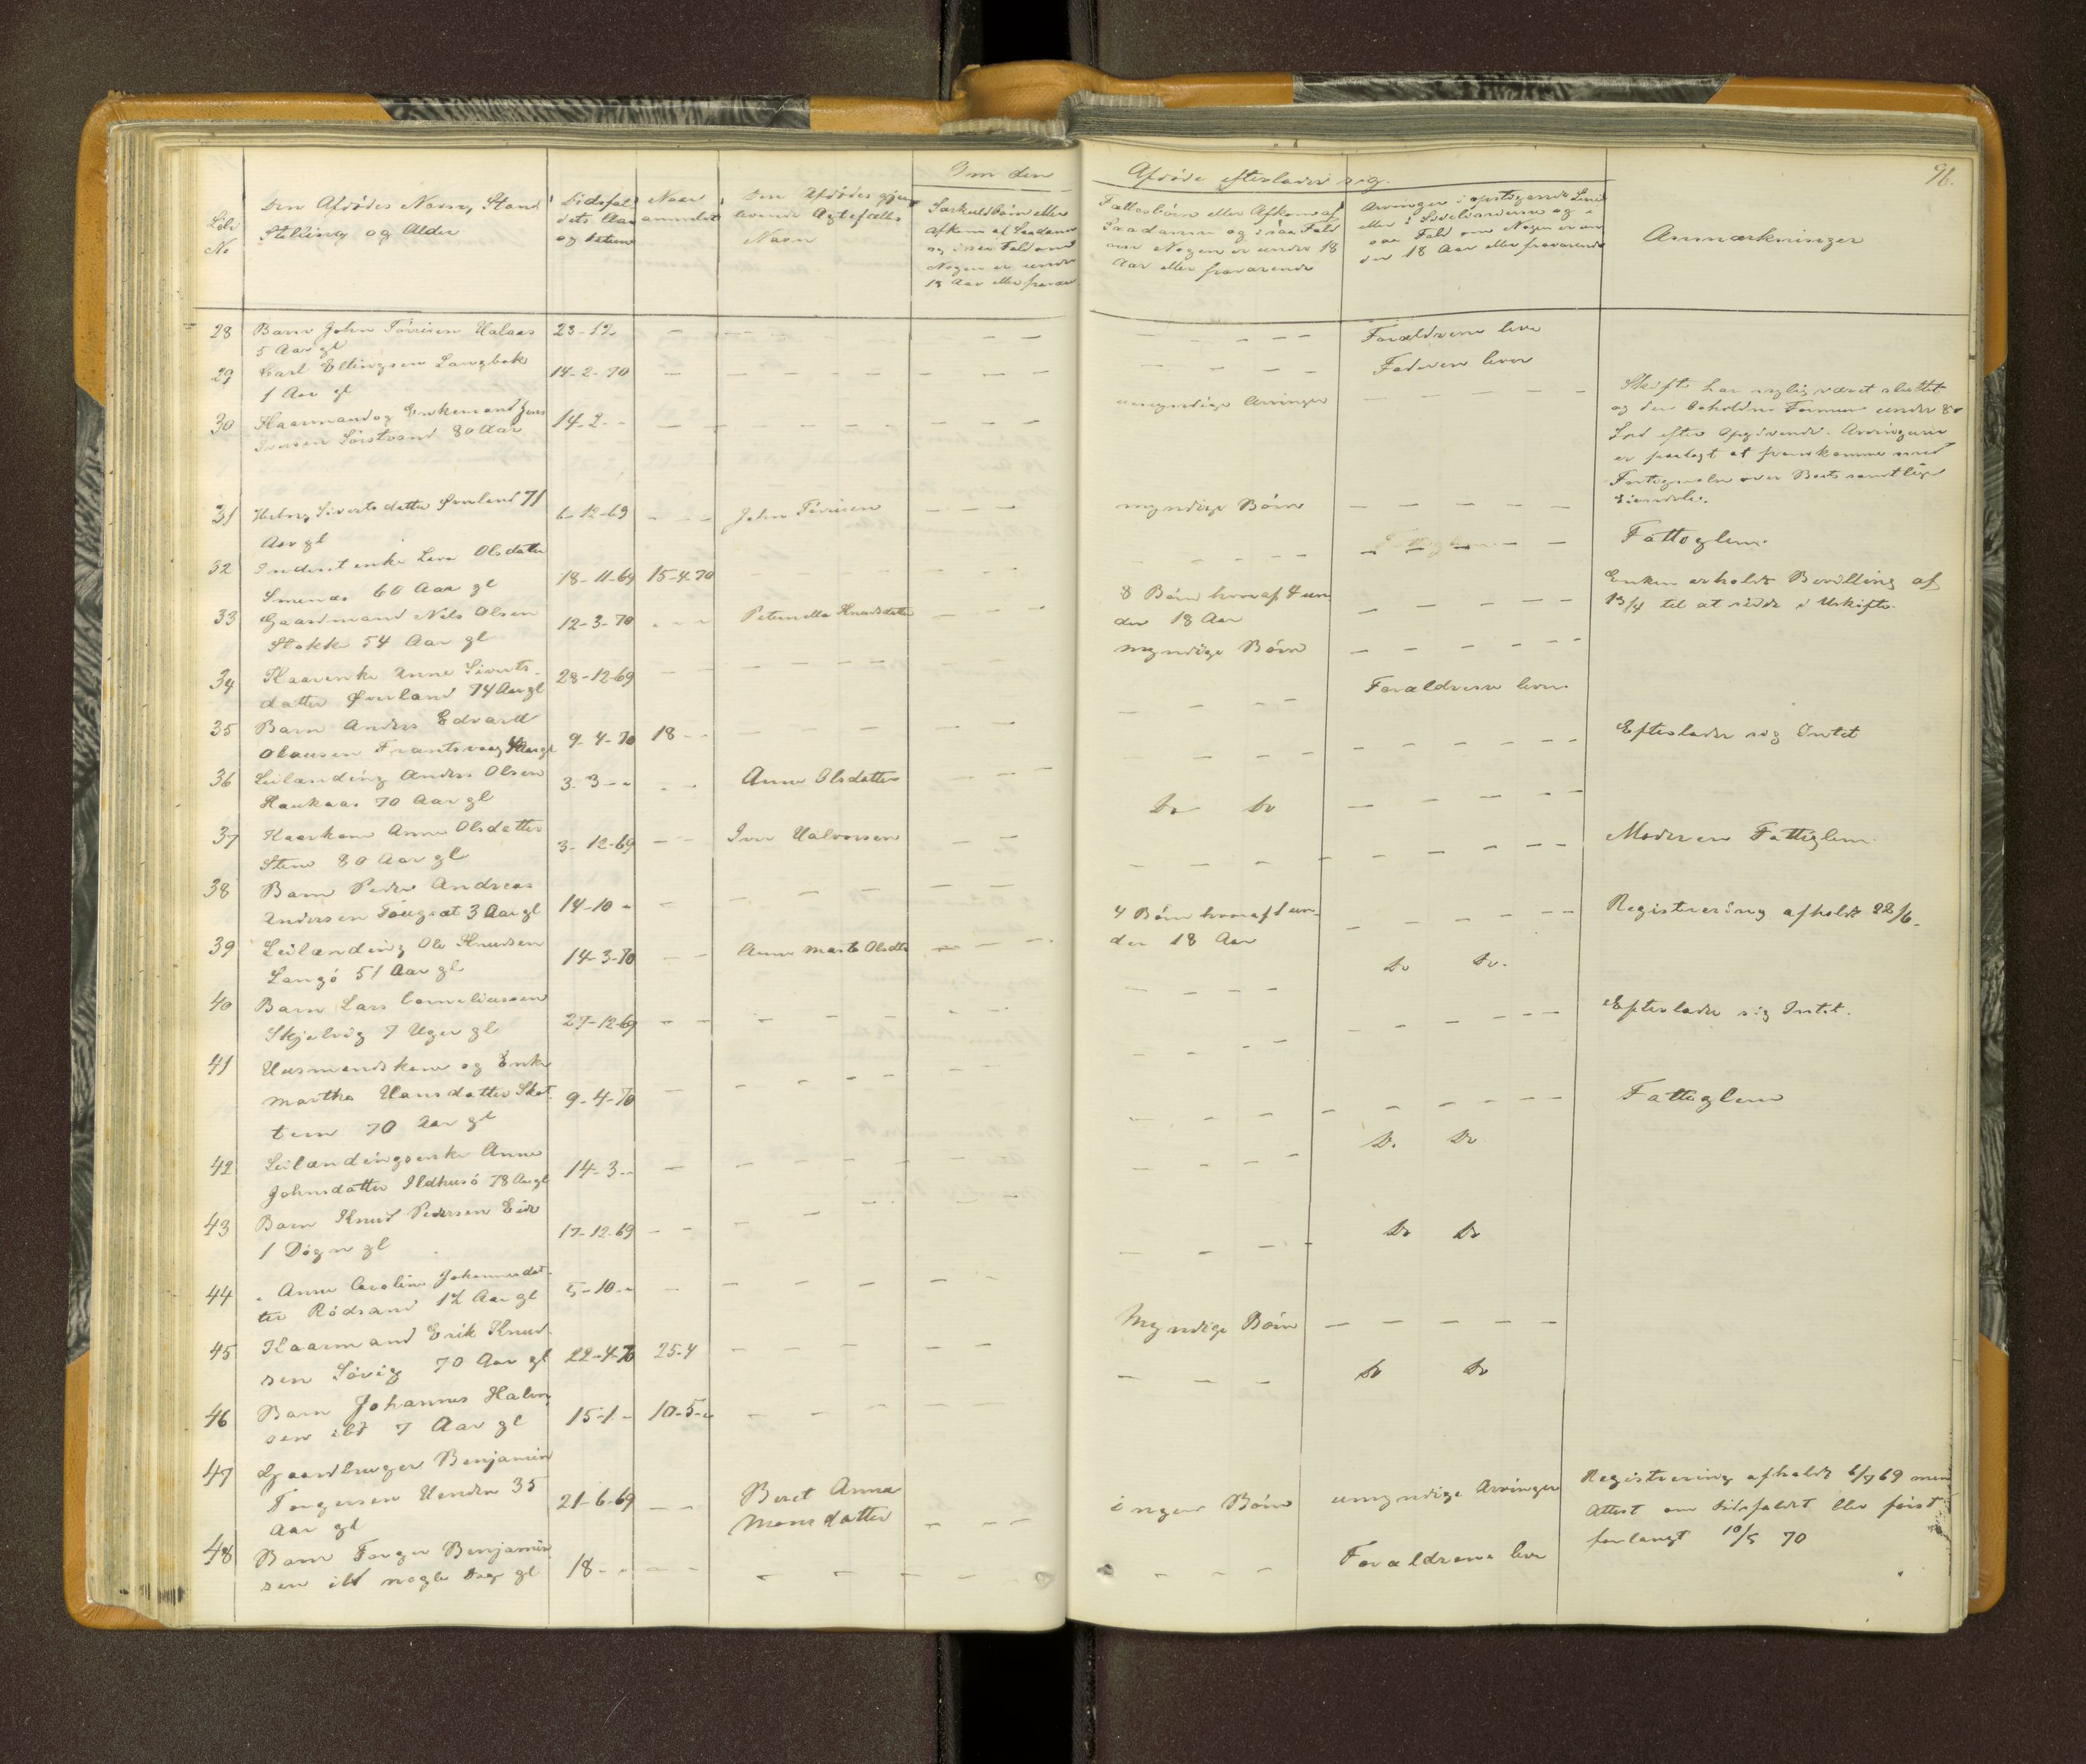 96.
Om den Afdøde efterlader sig.
Løbe No
Den Afdødes Navn, Stand
Stilling og Alder
Dødsfal
dets Aar
og Datum
Naar
anmeldt
Den Afdødes gjen
levende Ægtefælles
Navn
Særkuldbørn eller
Afkom af Saadanne
og i saa Fald om
Nogen er under
18 Aar eller fravær
Fællesbørn eller Afkom af
Saadanne og i saa Fald
om Nogen er under 18
Aar eller fraværende
Arvinger i opstigende Linie
eller i Sidelinierne og i
saa Fald om Nogen er un
der 18 Aar eller fraværende
Anmærkninger
28 Barn John Halaas 23-12 - - - Forældrene leve
5 Aar gl
29 Carl Ellingsen Langbak 14-2-70 - - - Faderen lever
1 Aar gl
30 Kaarmand og Enkemand Jens 14-2 - - - umyndige Arvinger - - - Skifte har nylig været sluttet
Iversen 80 Aar og den beholdne Formue under 80
Spd efter Opgivende. Arvingerne
er paalagt at fremkomme med
Fortegnelse over Boets samtlige
Eiendele.
31 Siverts datter Øverland 71 6-12-69 - - - John myndige Børn - - -
Aar gl
32 Inderst enke Olsdatter 18-11-69 15-4-70 - - - Fattiglem.
Smenes 60 Aar gl
33 Gaardmand Nils Olsen 12-3-70 - - - Peternella Knudsdatter 8 Børn hvoraf 4 un - - - Enken erholdt Bevilling af
Stokke 54 Aar gl der 18 Aar 13/4 til at sidde i Uskifte.
34 Kaarenke Anne Siverts- 28-12-69 - - - myndige Børn - - -
datter Øverland 74 Aar gl
35 Barn Anders Edvard 9-4-70 18 - - - Forældrene lever.
Olausen Frantsvaag Aar gl
36 Leilænding Anders Olsen 3-3 - - - Anne Olsdatter - - - Efterlader sig Intet
Haukaas 70 Aar gl
37 Kaarkone Anne Olsdatter 3-12-69 - - Iver Halvorsen Do Do - - -
Sten 80 Aar gl
38 Barn Peder Andreas 14-10 - - - Moderen Fattiglem.
Andersen 3 Aar gl
39 Leilænding Ole Knudsen 14-3-70 - - Anne Marta Olsdtr 4 Børn hvoraf 1 un- - - - Registrering afholdt 22/6.
Langø 51 Aar gl der 18 Aar
40 Barn Lars Corneliussen 27-12-69 - - - Do Do.
Skjelvig 7 Uger gl
41 Husmandskone og Enke 9-4-70 - - - Efterlader sig Intet.
Martha Hansdatter Skot-
tem 70 Aar gl
42 Leilændingsenke Anne 14-3 - - - Fattiglem
Johnsdatter Ildhusø 78 Aar gl
43 Barn Knud Pedersen Eide 17-12-69 - - - Do Do
1 Døgn gl
44 " Anne Caroline Johannesdat- 5-10 - - - Do Do
ter Rødsand 12 Aar gl
45 Kaarmand Erik Knud- 22-4-70 25-4 - - - Myndige Børn - - -
sen Søvig 70 Aar gl
46 Barn Johannes Halvor 15-1 - 10-5 - - - Do Do
sen ibd 7 Aar gl
47 Gaardbruger Benjamin 21-6-69 - - Beret Anna ingen Børn umyndige Arvinger Registrering afholdt 6/7 69 men
Torgersen Henden 35 Monsdatter Attest om Dødsfaldet blev først
Aar gl forlangt 10/5 70
48 Barn Torger Benjamin 18 - - - Forældrene leve
sen ibd nogle Dage gl